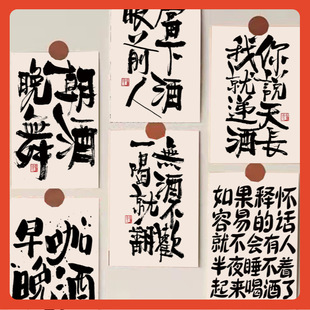 朝酒
晚舞
當下酒
眼前人
你說天長
我就遞酒
無酒不歡
一喝就翻
早咖
晚酒
如果释怀
容易的话
就不会有人
半夜睡不着
起来喝酒了